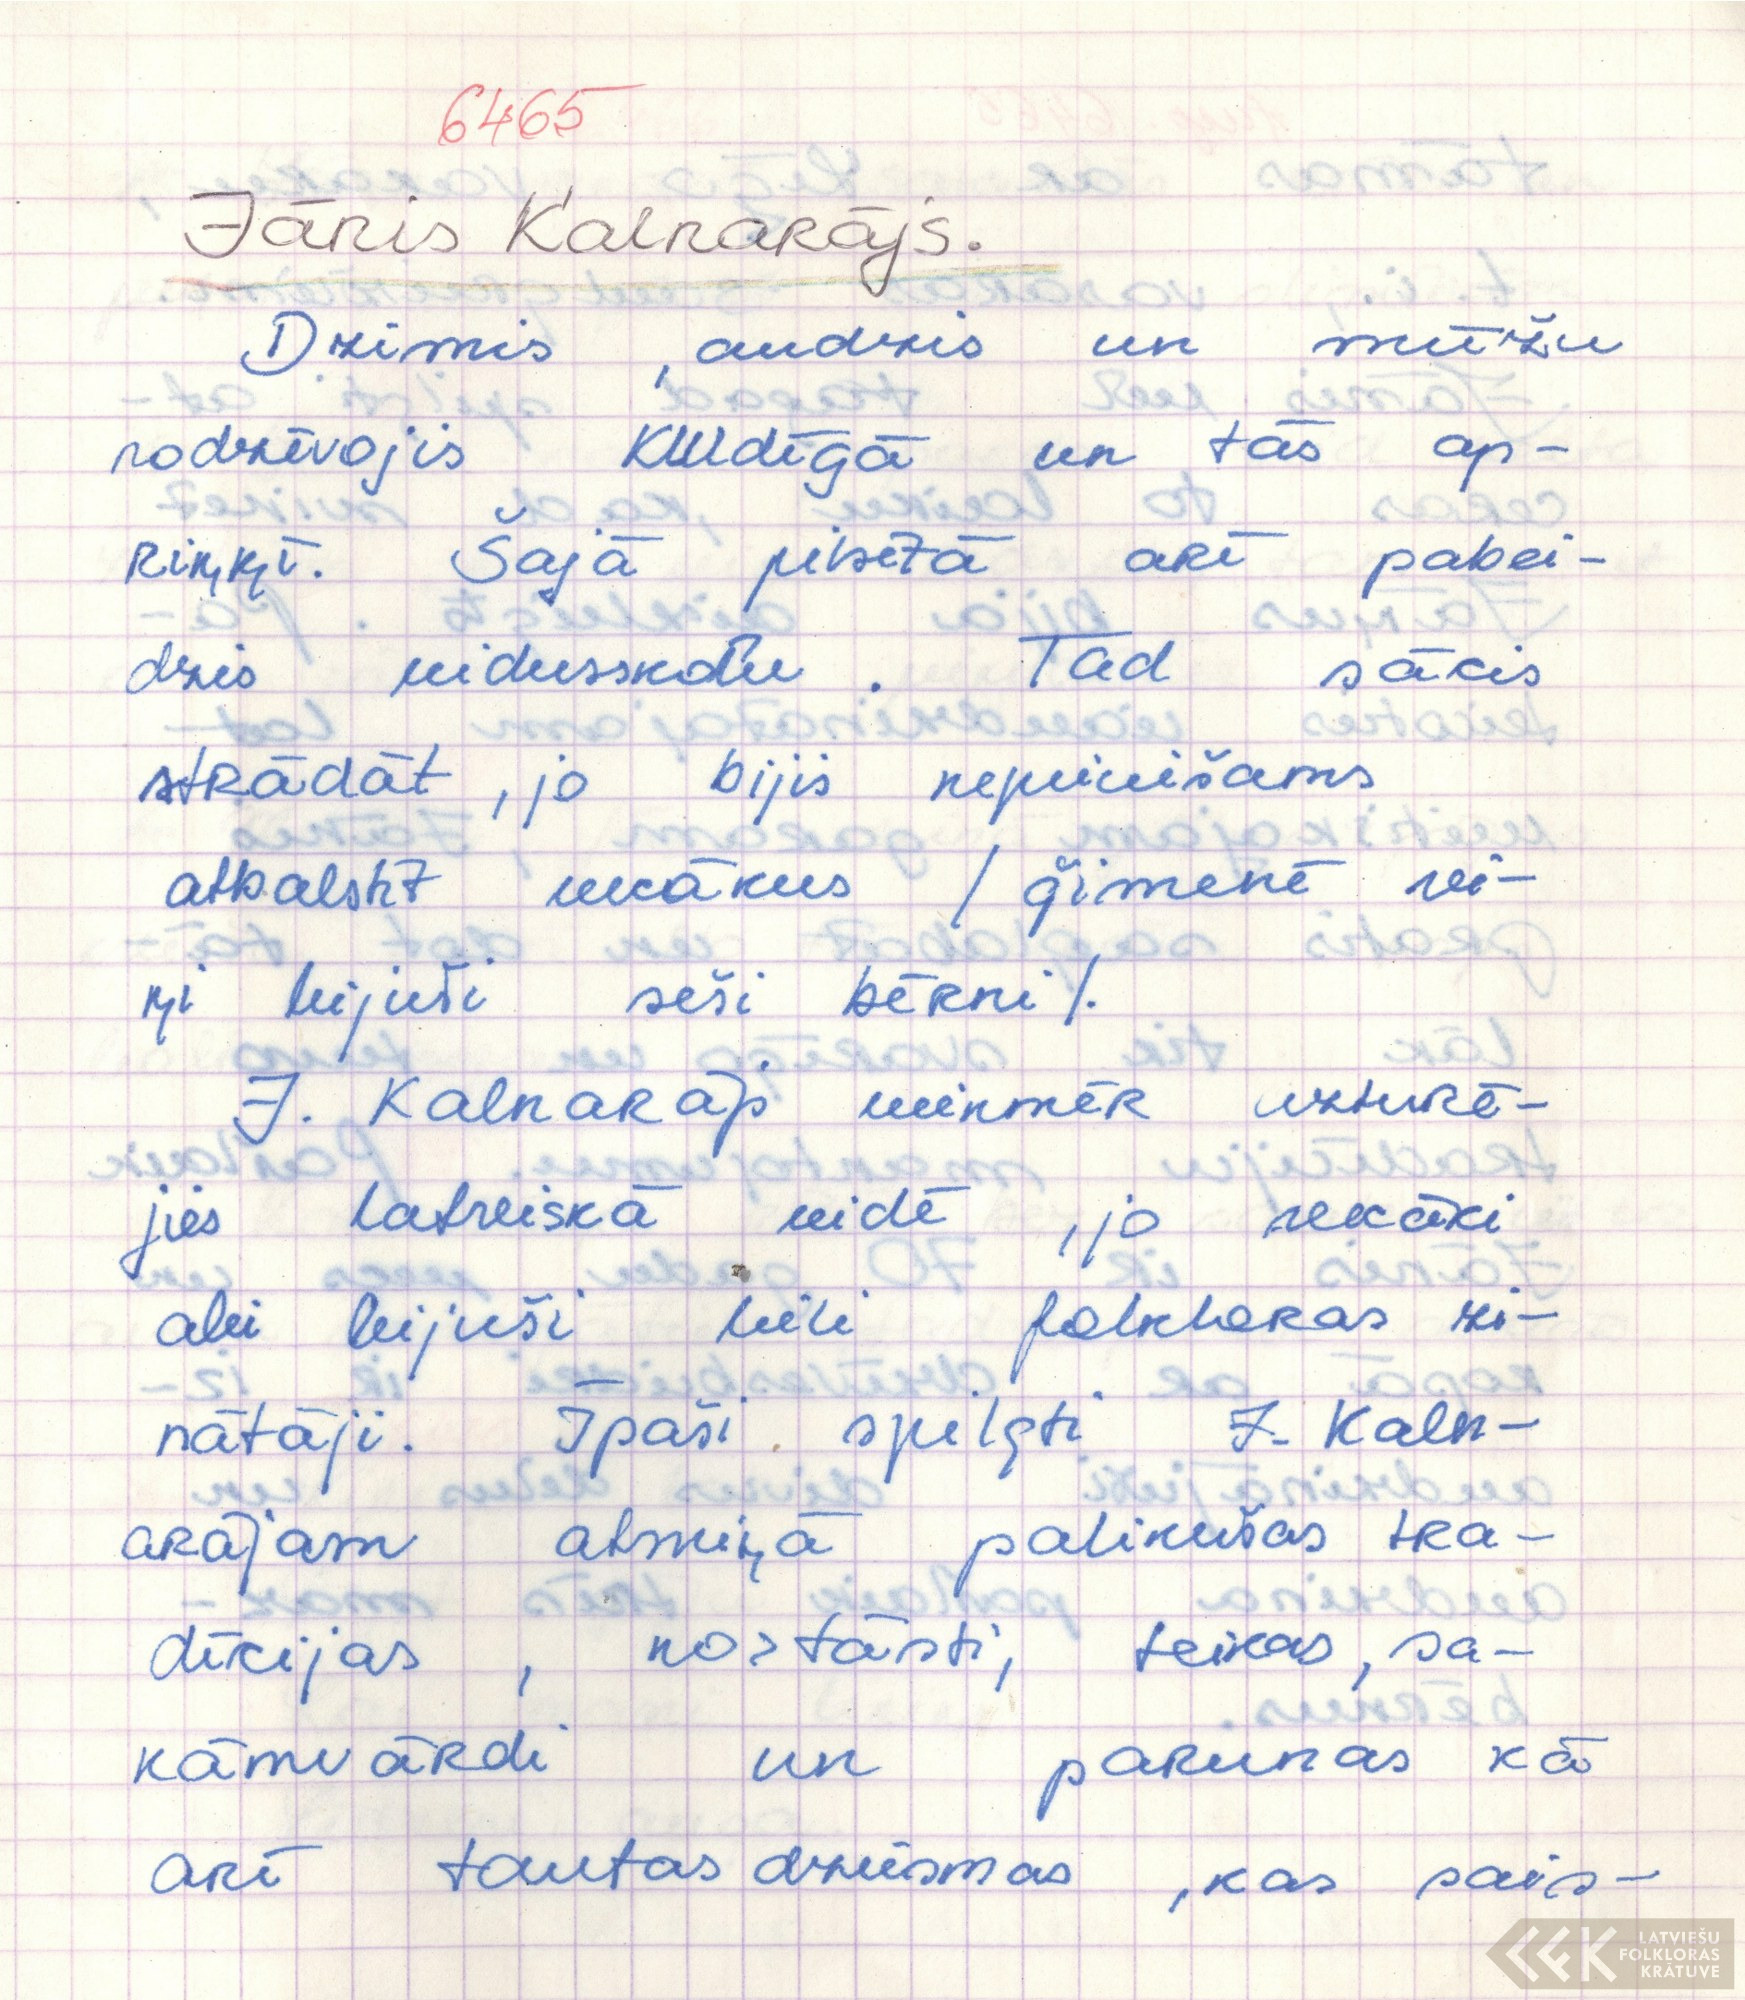 6465
Jānis Kalnarājs.
Dzimis, audzis un mūžu
nodzīvojis Kuldīgā un tās ap-
riņķī. Šajā pilsētā arī pabei-
dzis vidusskolu. Tad sācis
strādāt, jo bijis nepieciešams
atbalstīt vecākus / ģimenē vi-
ņi bijuši seši bērni/.
J. Kalnarājs vienmēr uzturē-
jies latviskā vidē, jo vecāki
abi bijuši lieli folkloras zi-
nātāji. Īpaši spilgti J. Kaln-
arājam atmiņā palikušas tra-
dīcijas, nostāsti, teikas, sa-
kāmvārdi un parunas kā
arī tautas dziesmas, kas sais-
LATVIEŠU
FOLKLORAS
KRĀTUVE